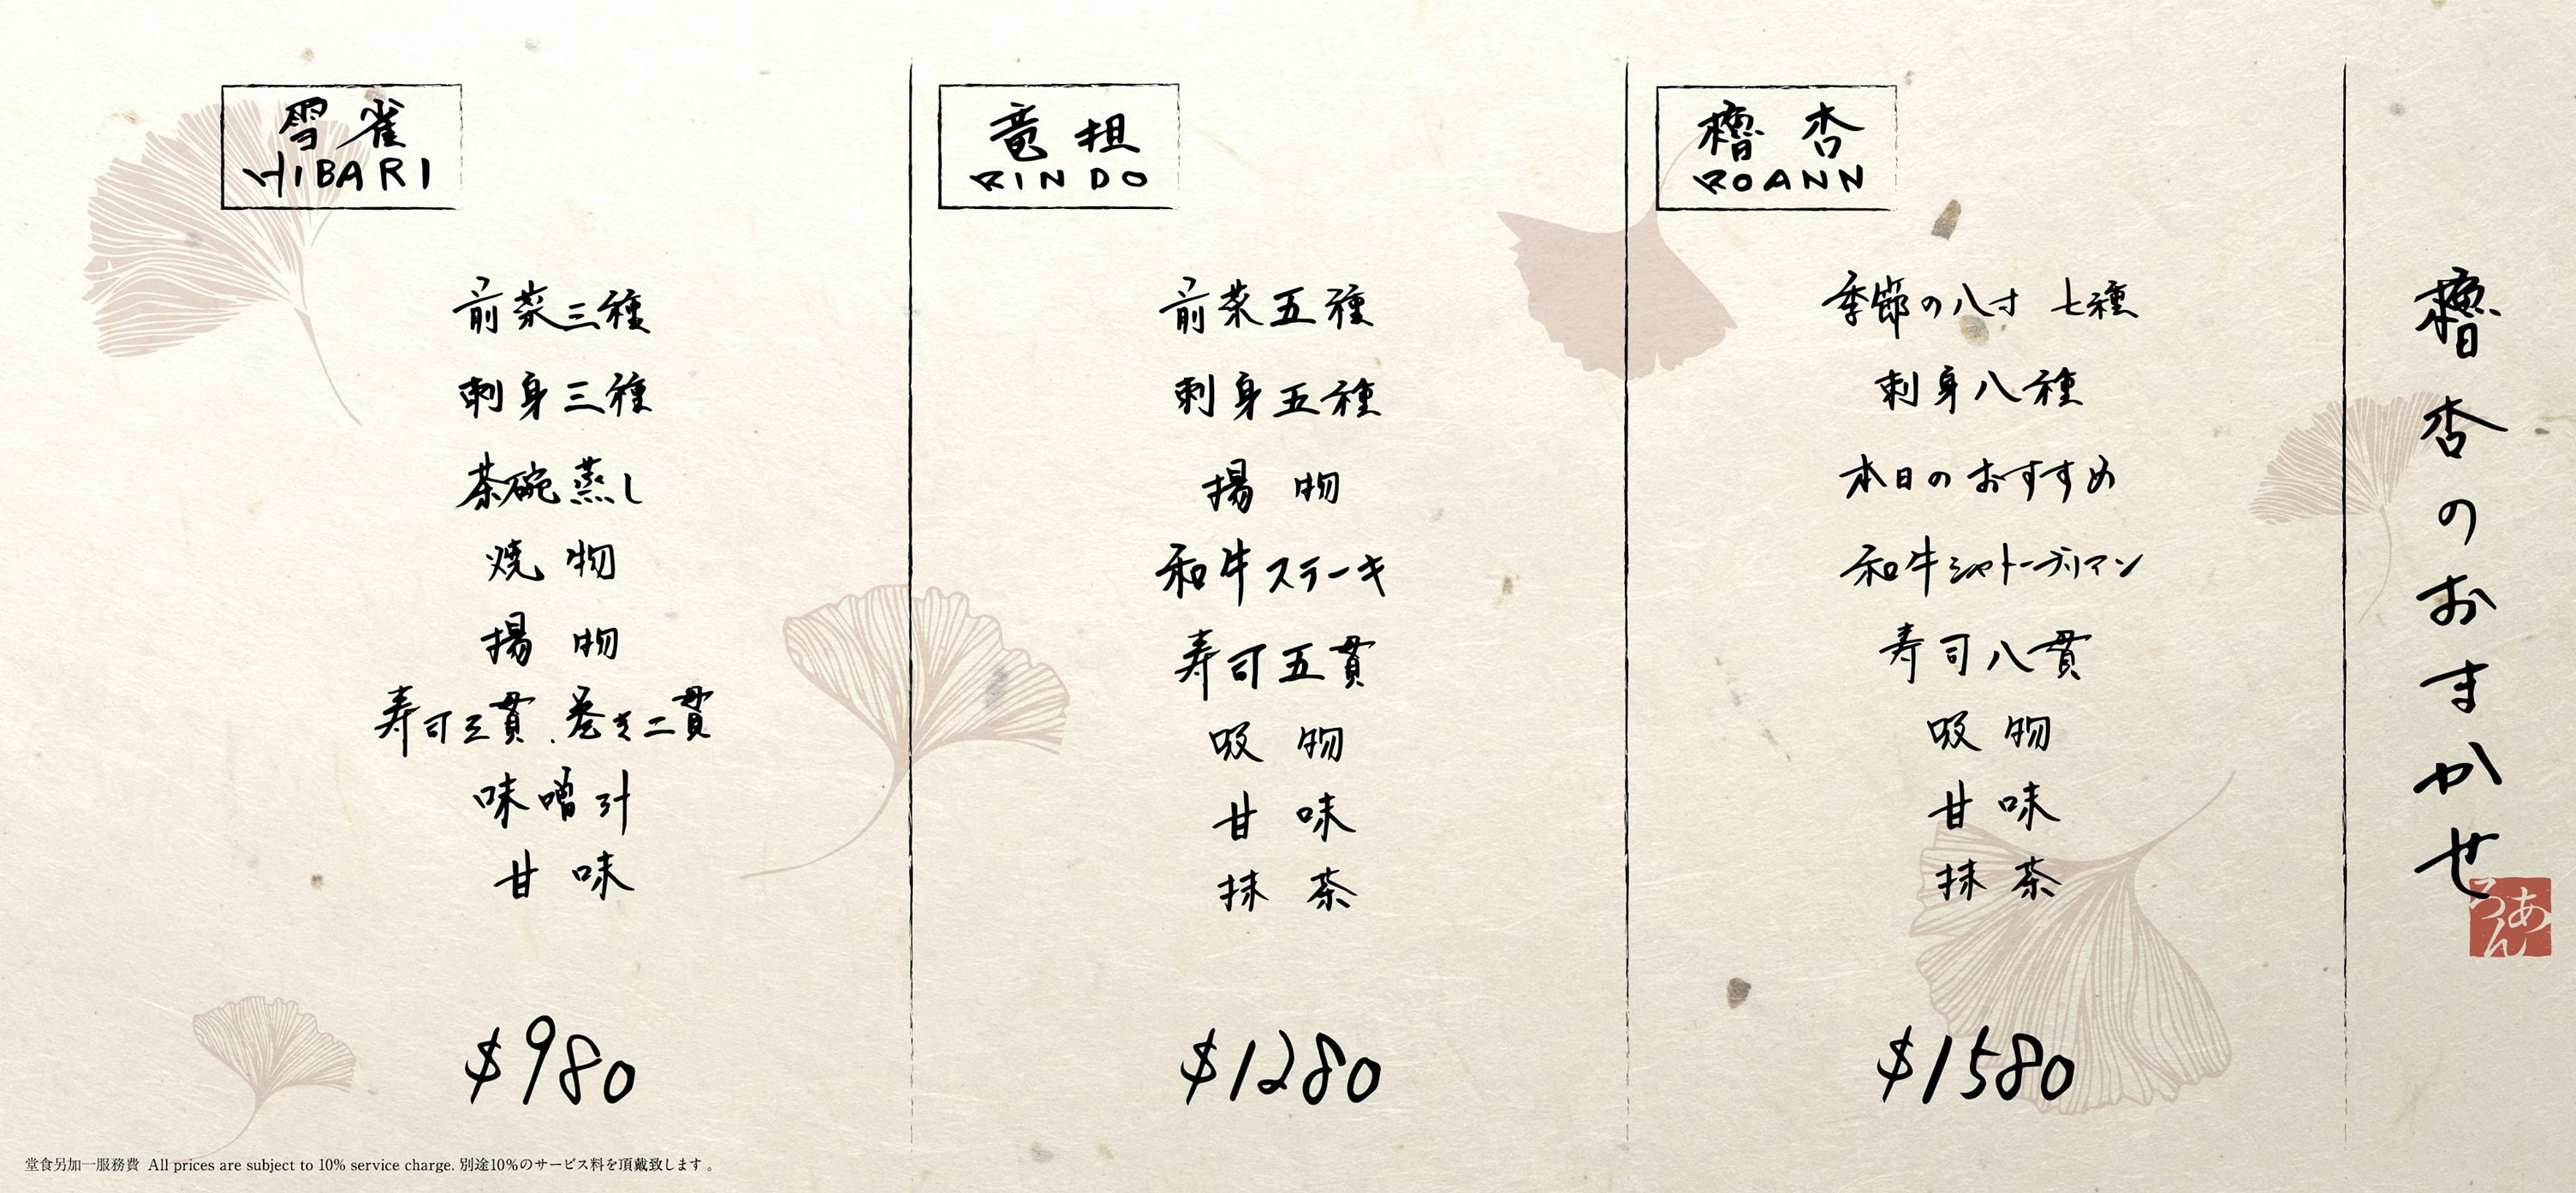 櫓杏のおまかせ
ろあん
雪雀
HIBARI
前菜三種
刺身三種
茶碗蒸し
焼物
揚物
寿司三貫、巻き二貫
味噌汁
甘味
$980
竜担
RINDO
前菜五種
刺身五種
揚物
和牛ステーキ
寿司五貫
吸物
甘味
抹茶
$1280
櫓杏
ROANN
季節の八寸 七種
刺身八種
本日のおすすめ
和牛シャトーブリアン
寿司八貫
吸物
甘味
抹茶
$1580
堂食另加一服務費 All prices are subject to 10% service charge. 別途10%のサービス料を頂戴致します。